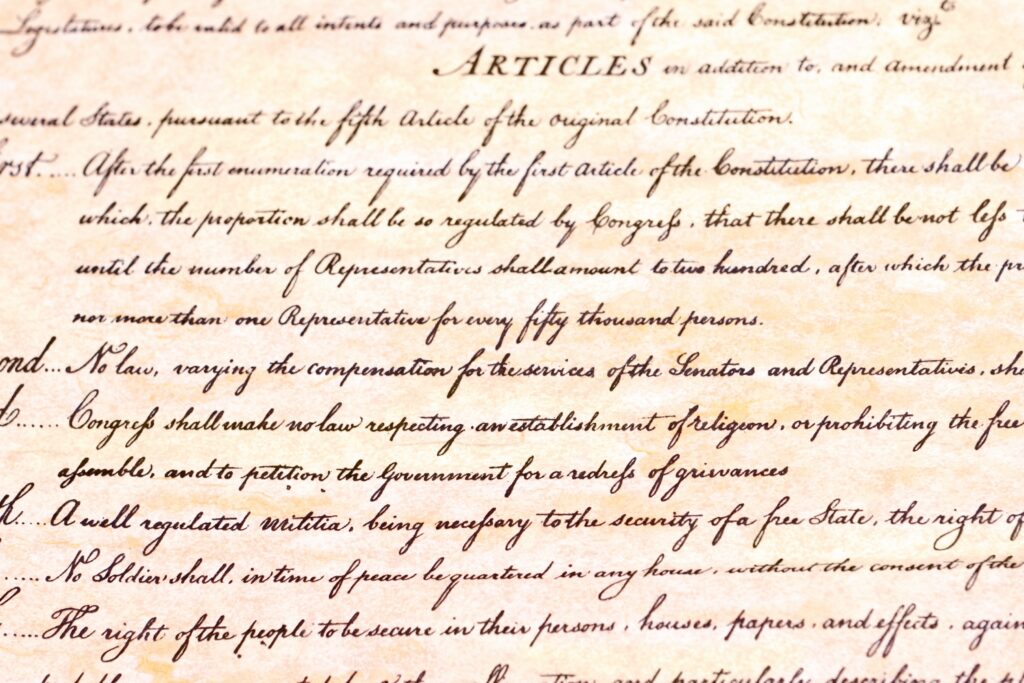 Legislatures, to be valid to all intents and purposes, as part of the said Constitution; vizt
ARTICLES in addition to, and amendment
several States, pursuant to the fifth Article of the original Constitution.
rst..... After the first enumeration required by the first Article of the Constitution, there shall be
which, the proportion shall be so regulated by Congress, that there shall be not less
until the number of Representatives shall amount to two hundred, after which the pr
nor more than one Representative for every fifty thousand persons.
ond... No law, varying the compensation for the services of the Senators and Representatives, sha
d...... Congress shall make no law respecting an establishment of religion, or prohibiting the free
assemble, and to petition the Government for a redress of grievances
th..... A well regulated Militia, being necessary to the security of a free State, the right of
...... No Soldier shall, in time of peace be quartered in any house, without the consent of the
..... The right of the people to be secure in their persons, houses, papers, and effects, again
and particularly describing the pl